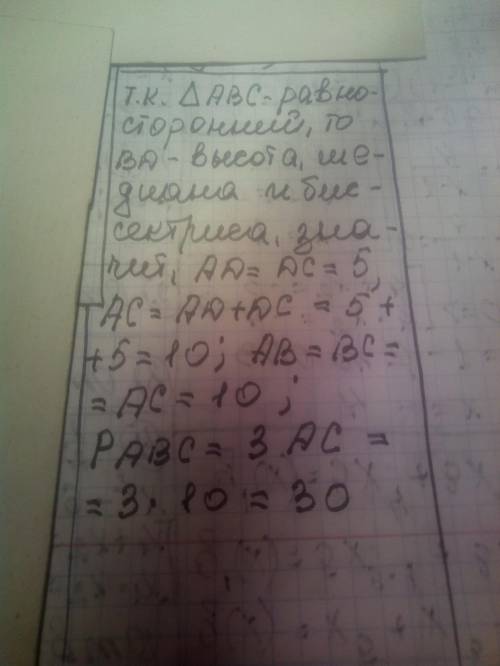 т.к. △ABC-равно-
сторонний, то
BD-высота, ме-
диана и бис-
сектриса, зна-
чит, AD= DC= 5,
AC= AD+DC = 5+
+5=10; AB=BC=
=AC=10;
PABC= 3 AC =
=3·10=30